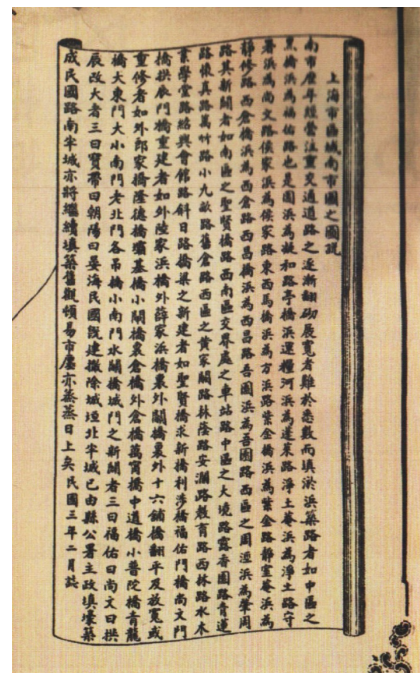 上海市區域南市圖之圖說
南市歷年經營注重交通道路之逐漸翻砌展寬者難於悉數而填淤浜築路者如中區之
黑橋浜為福佑路也是園浜為凝和路亭橋浜運糧河浜為蓬萊路淨土菴浜為淨土路守
署浜為尚文路侯家浜為侯家路東西馬橋浜為方浜路紫金橋浜為紫金路靜室菴浜為
靜修路西倉橋浜為西倉路西昌橋浜為西昌路吾園浜為吾園路西區之周涇浜為肇周
路其新開者如南區之聖賢橋路西南區交界處之車站路中區之大境路露香園路青蓮
路懷真路萬竹路小九畝路舊倉路西區之黃家闕路林蔭路安瀾路教育路西林路水木
業學堂路紹興會館路斜日路橋梁之新建者如聖賢橋求新橋利涉橋福佑門橋尚文門
橋拱辰門橋重建者如外陸家浜橋外薛家浜橋裏外關橋裏外十六鋪橋翻平及放寬或
重修者如外郎家橋隆德橋壩基橋小閘橋裏倉橋外倉橋萬甯橋中道橋小普院橋青龍
橋大東門大小南門老北門各吊橋小南門水關橋城門之新開者三曰福佑曰尚文曰拱
辰改大者三曰寶帶曰朝陽曰晏海民國既建撤除城垣北半城已由縣公署主政填壕築
成民國路南半城亦將繼續填築舊觀頓易市廛亦蒸蒸日上矣民國三年二月誌